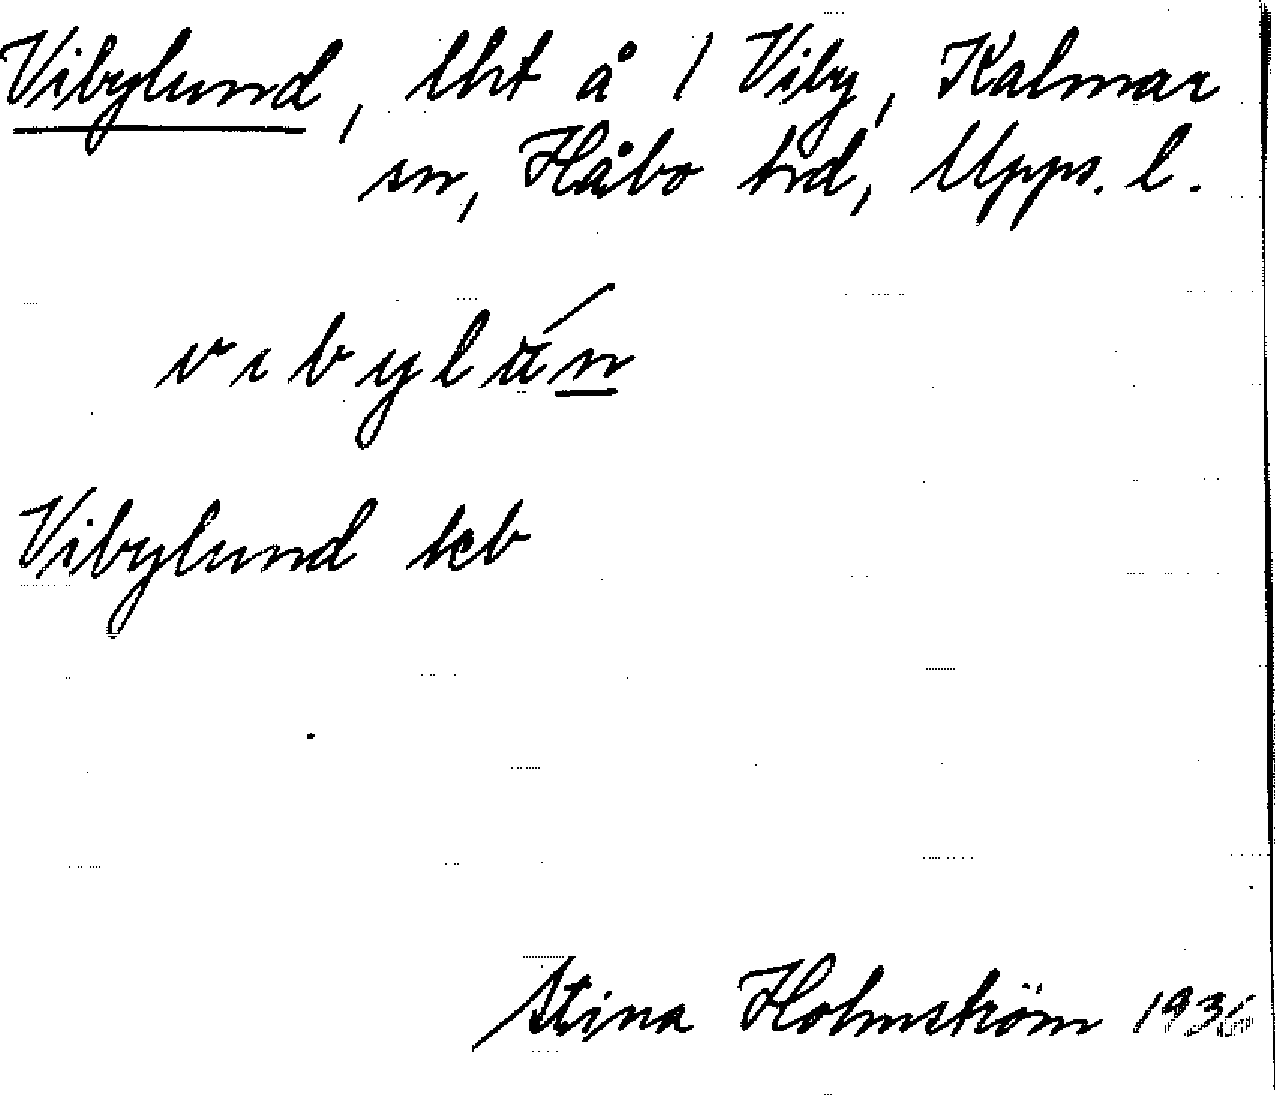 Vibylund, lht å 1 Viby, Kalmar
sn, Håbo hrd, Upps. l.
vibylún
Vibylund keb
Stina Holmström 1936